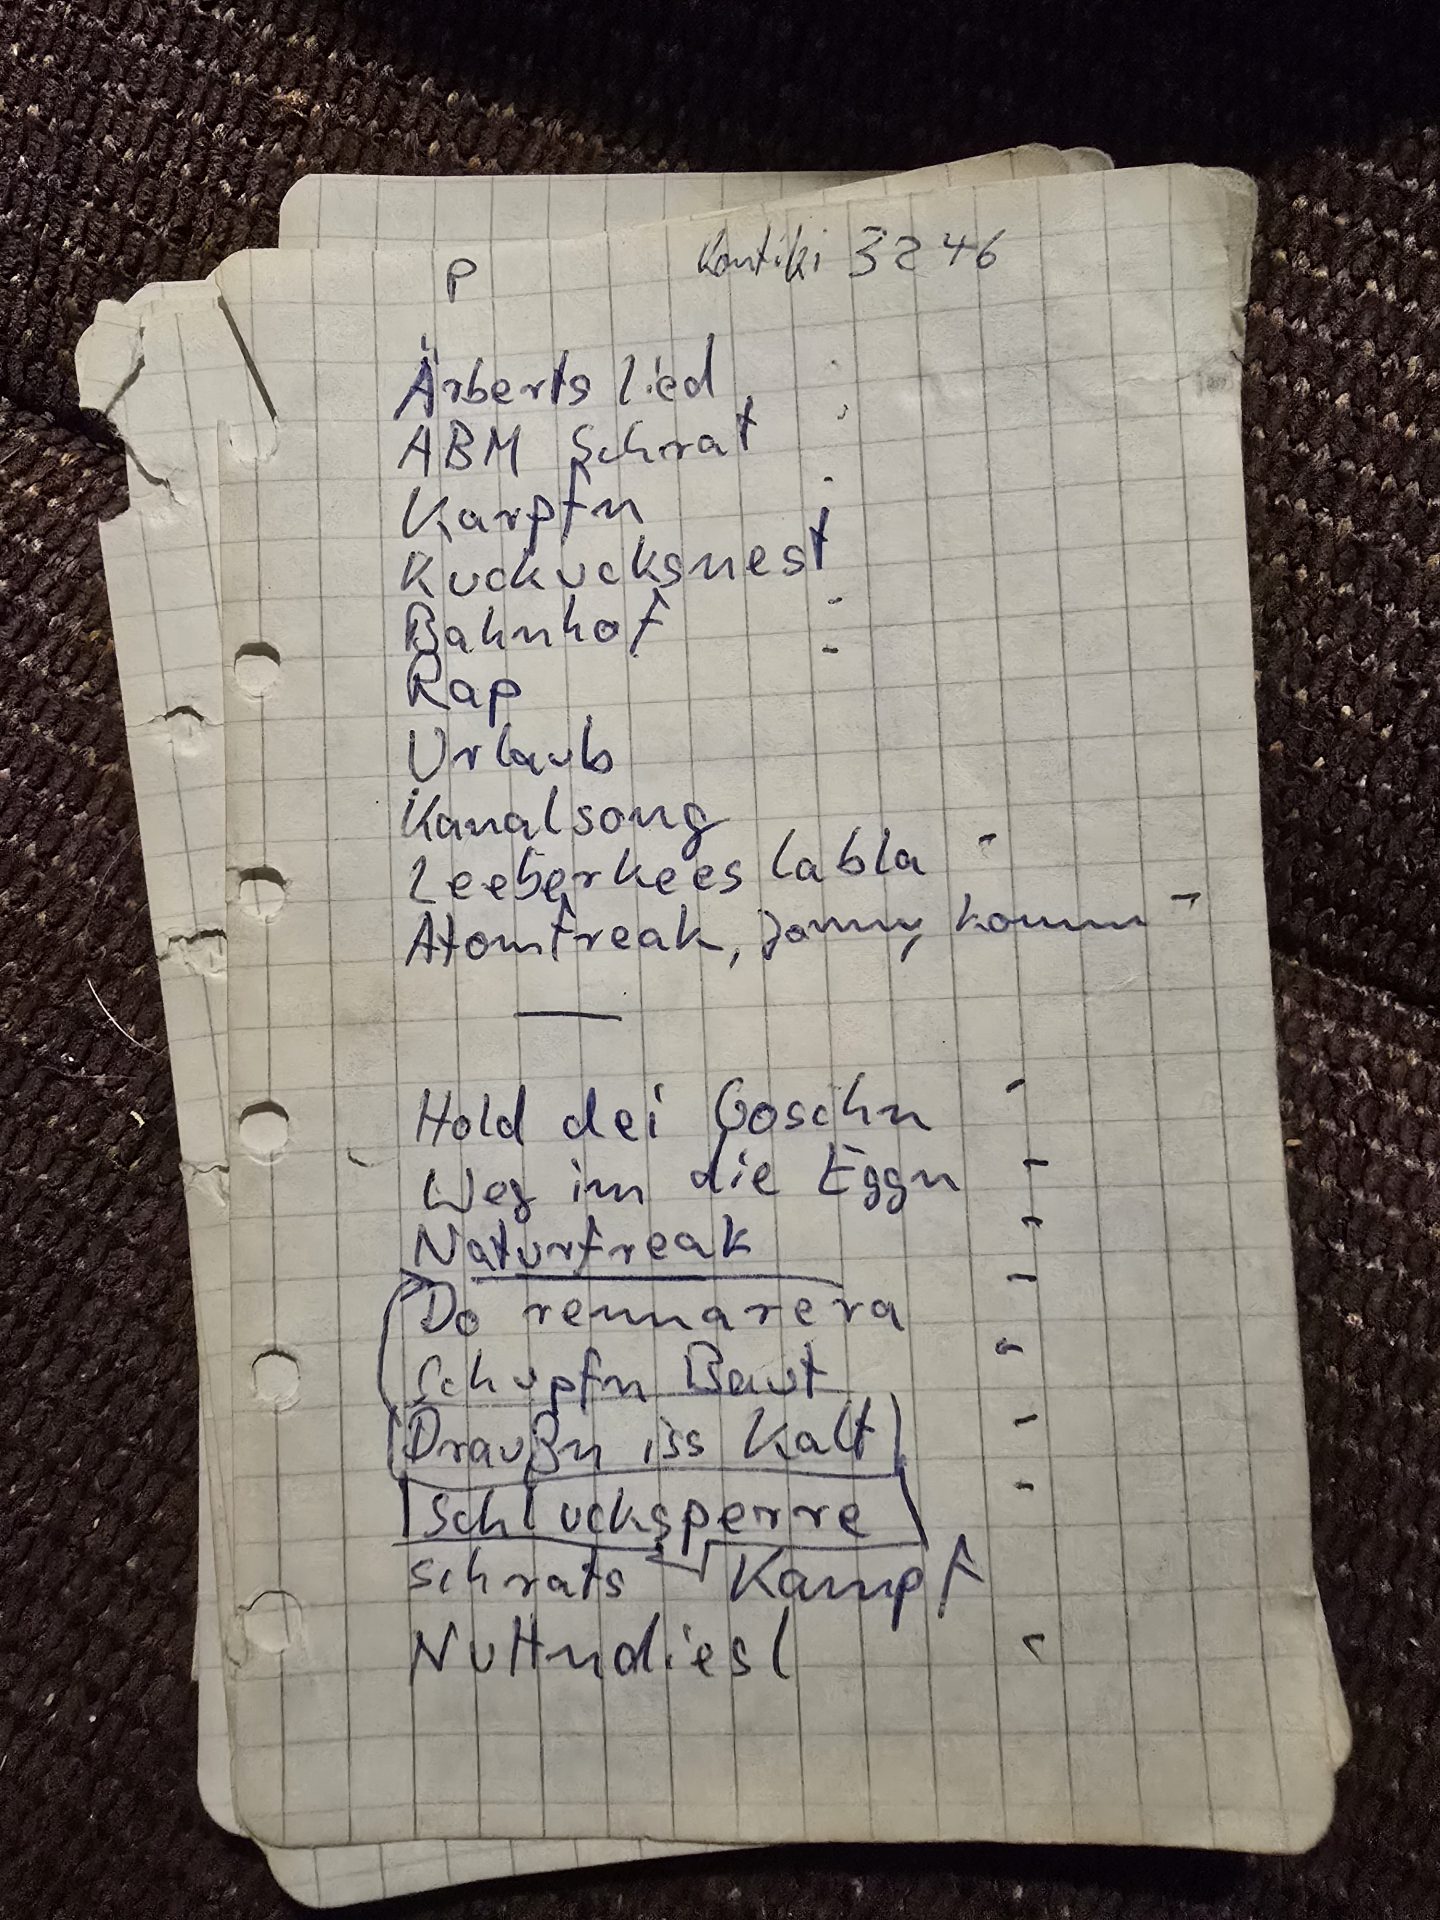 P Kontiki 3246
Ärberts lied
ABM Schrat
Karpfn
Kuckucksnest
Bahnhof
Rap
Urlaub
Kanalsong
Leeberkees labla
Atomfreak, Jonny komm
Hold dei Goschn
Weg im die Eggn
Naturfreak
Do rennarera
Schupfn Baut
Draußn iss Kalt
Schlucksperre
Schrats Kampf
Nuttndiesl